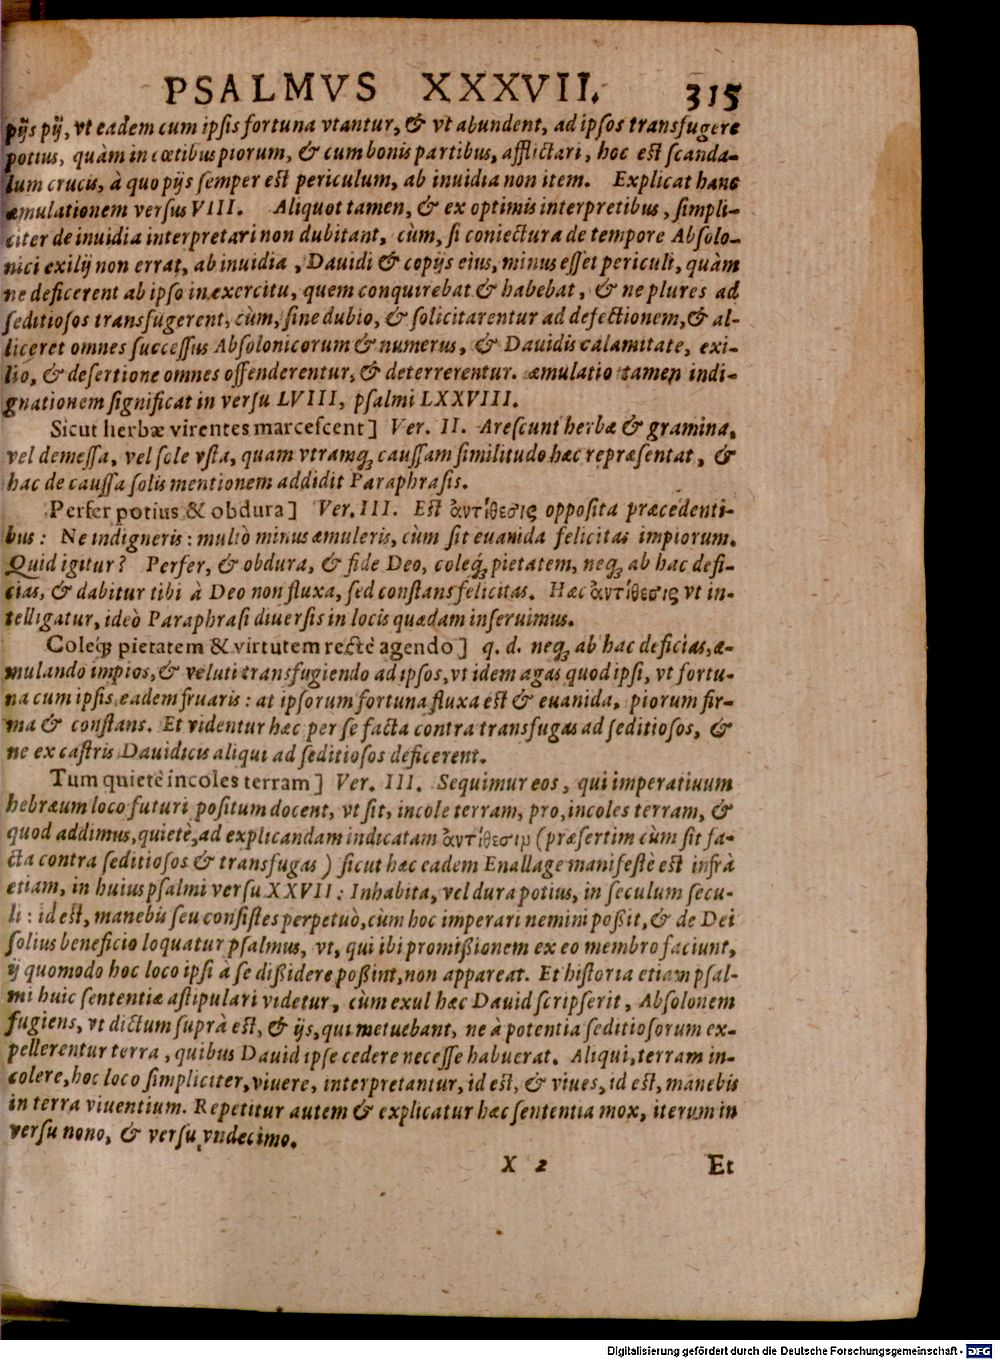 PSALMVS XXXVII. 315
pijs pij, vt eadem cum ipsis fortuna vtantur, & vt abundent, ad ipsos transfugere
potius, quàm in cœtibus piorum, & cum bonis partibus, afflictari, hoc est scanda-
lum crucis, à quo pijs semper est periculum, ab inuidia non item. Explicat hanc
æmulationem versus VIII. Aliquot tamen, & ex optimis interpretibus, simpli-
citer de inuidia interpretari non dubitant, cùm, si coniectura de tempore Absolo-
nici exilij non errat, ab inuidia, Dauidi & copijs eius, minus esset periculi, quàm
ne deficerent ab ipso in exercitu, quem conquirebat & habebat, & ne plures ad
seditiosos transfugerent, cùm, sine dubio, & solicitarentur ad defectionem, & al-
liceret omnes successus Absolonicorum & numerus, & Dauidis calamitate, exi-
lio, & desertione omnes offenderentur, & deterrerentur. æmulatio tamen indi-
gnationem significat in versu LVIII, psalmi LXXVIII.
Sicut herbæ virentes marcescent] Ver. II. Arescunt herbæ & gramina,
vel demessa, vel sole vsta, quam vtramq; caussam similitudo hæc repræsentat, &
hac de caussa solis mentionem addidit Paraphrasis.
Perfer potius & obdura] Ver. III. Est ἀντίθεσις opposita præcedenti-
bus: Ne indigneris: multò minus æmuleris, cùm sit euanida felicitas impiorum.
Quid igitur? Perfer, & obdura, & fide Deo, coleq; pietatem, neq; ab hac defi-
cias, & dabitur tibi à Deo non fluxa, sed constans felicitas. Hæc ἀντίθεσις vt in-
telligatur, ideò Paraphrasi diuersis in locis quædam inseruimus.
Coleq; pietatem & virtutem rectè agendo] q. d. neq; ab hac deficias, æ-
mulando impios, & veluti transfugiendo ad ipsos, vt idem agas quod ipsi, vt fortu-
na cum ipsis eadem fruaris: at ipsorum fortuna fluxa est & euanida, piorum fir-
ma & constans. Et videntur hæc per se facta contra transfugas ad seditiosos, &
ne ex castris Dauidicis aliqui ad seditiosos deficerent.
Tum quietè incoles terram] Ver. III. Sequimur eos, qui imperatiuum
hebræum loco futuri positum docent, vt sit, incole terram, pro, incoles terram, &
quod addimus, quietè, ad explicandam indicatam ἀντίθεσιν (præsertim cùm sit fa-
cta contra seditiosos & transfugas) sicut hæc eadem Enallage manifestè est infrà
etiam, in huius psalmi versu XXVII: Inhabita, vel dura potius, in seculum secu-
li: id est, manebis seu consistes perpetuò, cùm hoc imperari nemini poßit, & de Dei
solius beneficio loquatur psalmus, vt, qui ibi promißionem ex eo membro faciunt,
ij quomodo hoc loco ipsi à se dißidere poßint, non appareat. Et historia etiam psal-
mi huic sententiæ astipulari videtur, cùm exul hæc Dauid scripserit, Absolonem
fugiens, vt dictum suprà est, & ijs, qui metuebant, ne à potentia seditiosorum ex-
pellerentur terra, quibus Dauid ipse cedere necesse habuerat. Aliqui, terram in-
colere, hoc loco simpliciter, viuere, interpretantur, id est, & viues, id est, manebis
in terra viuentium. Repetitur autem & explicatur hæc sententia mox, iterum in
versu nono, & versu vndecimo.
X 2 Et
Digitalisierung gefördert durch die Deutsche Forschungsgemeinschaft - DFG